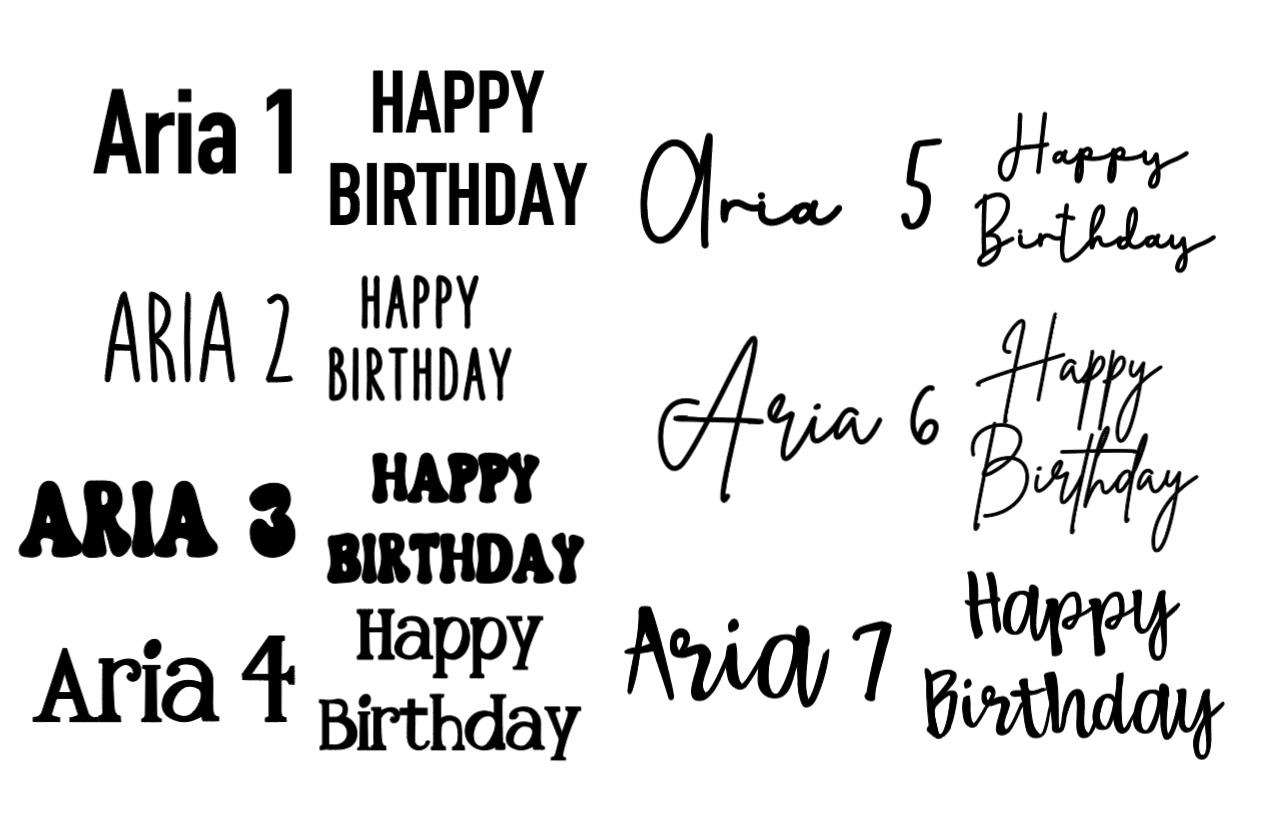 Aria 1
HAPPY
BIRTHDAY
ARIA 2
HAPPY
BIRTHDAY
ARIA 3
HAPPY
BIRTHDAY
Aria 4
Happy
Birthday
Aria 5
Happy
Birthday
Aria 6
Happy
Birthday
Aria 7
Happy
Birthday